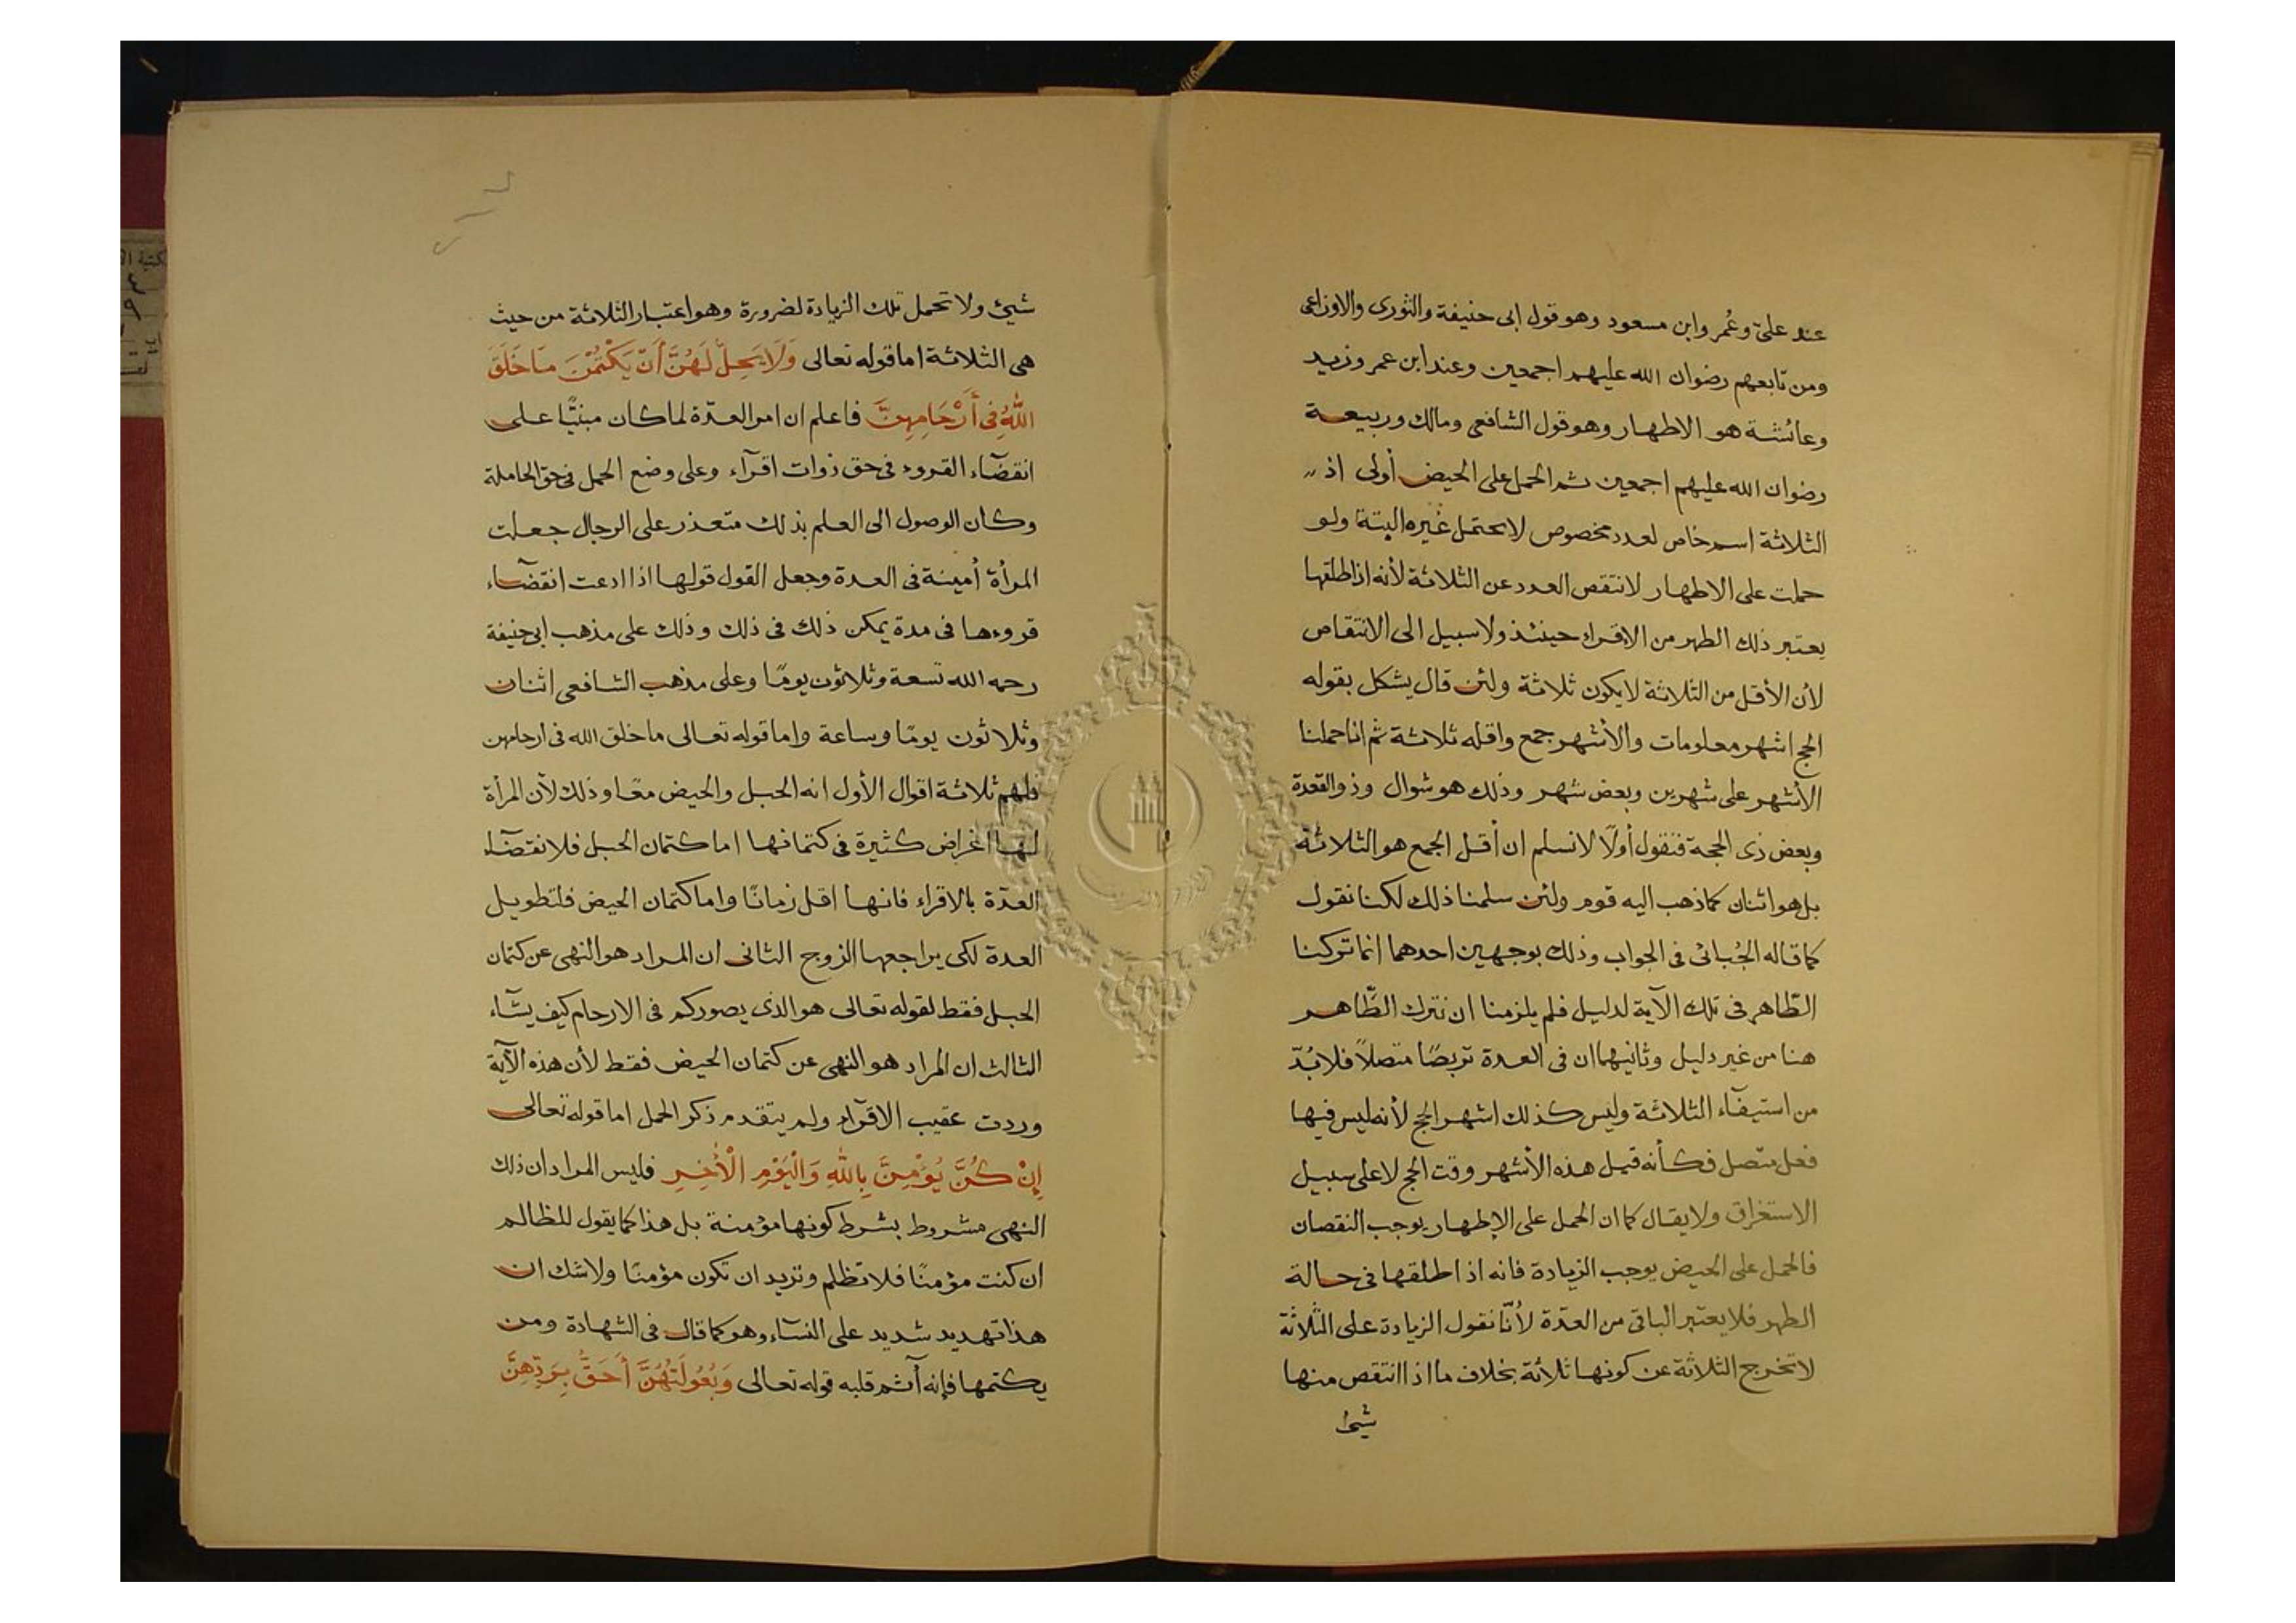 عند علىّ وعُمر وابن مسعود وهو قول ابى حنيفة والثورى والاوزاعى
ومن تابعهم رضوان الله عليهم اجمعين وعند ابن عمر وزيد
وعائشة هو الاطهار وهو قول الشافعى ومالك وربيعة
رضوان الله عليهم اجمعين ثم الحمل على الحيض أولى اذ
الثلاثة اسم خاص لعدد مخصوص لا يحتمل غيره البتة ولو
حملت على الاطهار لانتقص العدد عن الثلاثة لأنه اذا طلقها
يعتبر ذلك الطهر من الاقراء حينئذ ولا سبيل الى الانتقاص
لأن الأقل من الثلاثة لا يكون ثلاثة ولئن قال يشكل بقوله
الحج اشهر معلومات والأشهر جمع واقله ثلاثة ثم انا حملنا
الأشهر على شهرين وبعض شهر وذلك هو شوال وذو القعدة
وبعض ذى الحجة فنقول أولًا لا نسلم ان أقل الجمع هو الثلاثة
بل هو اثنان كما ذهب اليه قوم ولئن سلمنا ذلك لكنا نقول
كما قاله الجُبائى فى الجواب وذلك بوجهين احدهما انما تركنا
الظّاهر فى تلك الآية لدليل فلم يلزمنا ان نترك الظّاهر
هنا من غير دليل وثانيهما ان فى العدة تربصًا متصلاً فلا بُدّ
من استيفاء الثلاثة وليس كذلك اشهر الحج لأنه ليس فيها
فعل متّصل فكأنه قيل هذه الأشهر وقت الحج لا على سبيل
الاستغراق ولا يقال كما ان الحمل على الإطهار يوجب النقصان
فالحمل على الحيض يوجب الزيادة فانه اذا طلقها فى حالة
الطهر فلا يعتبر الباقى من العدّة لأنّا نقول الزيادة على الثلاثة
لا تخرج الثلاثة عن كونها ثلاثة بخلاف ما اذا انتقص منها
شئ
شيئ ولا تحمل تلك الزيادة لضرورة وهو اعتبار الثلاثة من حيث
هى الثلاثة اما قوله تعالى وَلَا يَحِلُّ لَهُنَّ أَنْ يَكْتُمْنَ مَا خَلَقَ
اللَّهُ فِى أَرْحَامِهِنَّ فاعلم ان امر العدّة لما كان مبنيًّا على
انقضآء القروء فى حق ذوات اقرآء وعلى وضع الحمل فى حق الحاملة
وكان الوصول الى العلم بذلك متعذر على الرجال جعلت
المرأة أمينة فى العدة وجعل القول قولها اذا ادعت انقضآء
قروءها فى مدة يمكن ذلك فى ذلك وذلك على مذهب ابى حنيفة
رحمه الله تسعة وثلاثون يومًا وعلى مذهب الشافعى اثنان
وثلاثون يومًا وساعة واما قوله تعالى ما خلق الله فى ارحامهن
فلهم ثلاثة اقوال الأول انه الحبل والحيض معًا وذلك لأن المرأة
لها اغراض كثيرة فى كتمانها اما كتمان الحبل فلانقضآء
العدّة بالاقراء فانها اقل زمانًا واما كتمان الحيض فلتطويل
العدة لكى يراجعها الزوج الثانى ان المراد هو النهى عن كتمان
الحبل فقط لقوله تعالى هو الذى يصوركم فى الارحام كيف يشآء
الثالث ان المراد هو النهى عن كتمان الحيض فقط لأن هذه الآية
وردت عقيب الاقرآء ولم يتقدم ذكر الحمل اما قوله تعالى
إِنْ كُنَّ يُؤْمِنَّ بِاللهِ وَالْيَوْمِ الْأَخِرِ فليس المراد أن ذلك
النهى مشروط بشرط كونها مؤمنة بل هذا كما يقول للظالم
ان كنت مؤمنًا فلا تظلم وتريد ان تكون مؤمنًا ولا شك ان
هذا تهديد شديد على النسآء وهو كما قال فى الشهادة ومن
يكتمها فإنه آثم قلبه قوله تعالى وَبُعُولَتُهُنَّ أَحَقُّ بِرَدِّهِنَّ